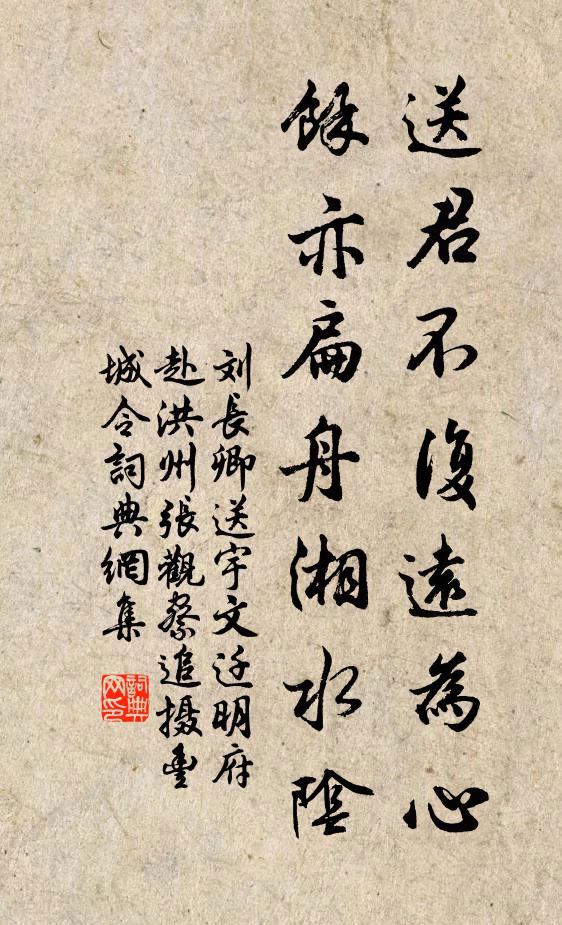 送君不復遠為心
餘亦扁舟湘水陰
刘長卿送宇文迁明府
赴洪州張觀察追摄豐
城令詞典網集
詞典网印